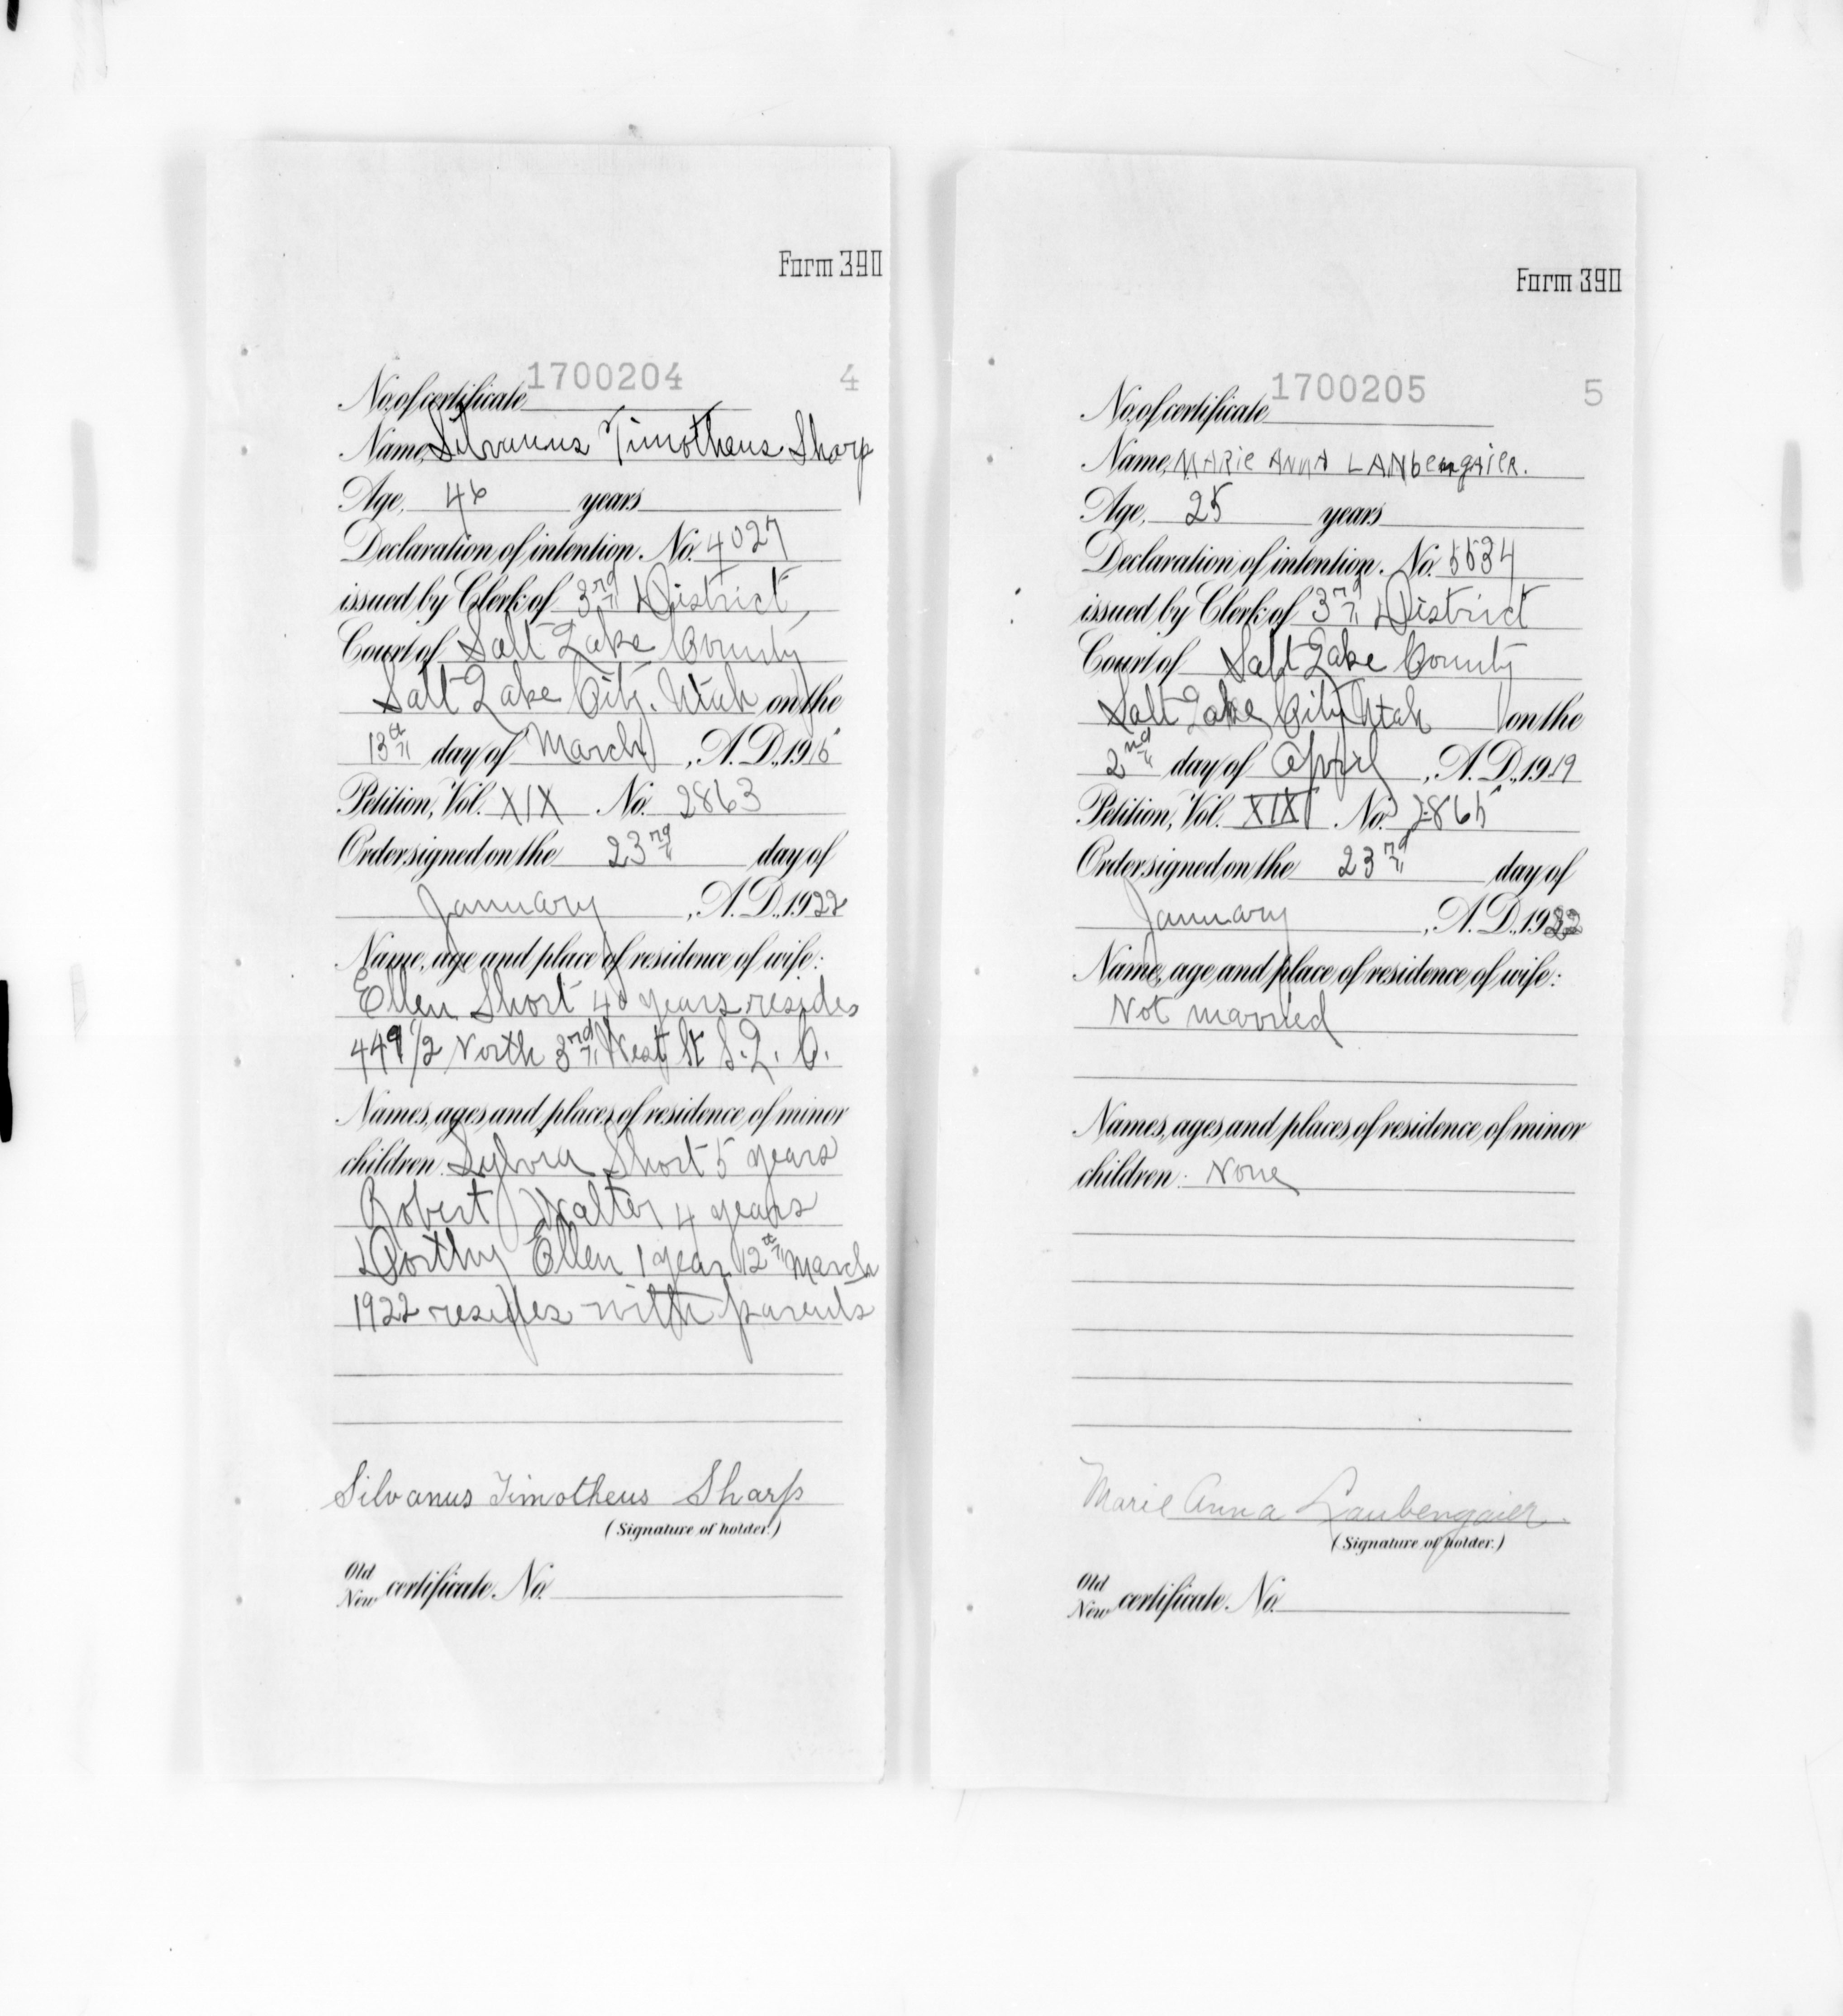 Form 390
No. of certificate 1700204 4
Name, Silvanus Timotheus Sharp
Age, 46 years
Declaration of intention. No. 4027
issued by Clerk of 3rd District
Court of Salt Lake County
Salt Lake City. Utah on the
13th day of March, A. D., 1915
Petition, Vol. XIX No. 2863
Order signed on the 23rd day of
January, A. D., 1922
Name, age and place of residence of wife:
Ellen Short 40 years resides
449 1/2 North 3rd West St S. L. C.
Names, ages and places of residence of minor
children: Sylvia Short 5 years
Robert Walter 4 years
Dorthy Ellen 1 year 12th March
1922 resides with parents
Silvanus Timotheus Sharp
(Signature of holder.)
Old
New certificate. No.
Form 390
No. of certificate 1700205 5
Name, MARIE ANNA LANbengAIER.
Age, 25 years
Declaration of intention. No. 5534
issued by Clerk of 3rd District
Court of Salt Lake County
Salt Lake City Utah on the
2nd day of April, A. D., 1919
Petition, Vol. XIX. No. 2865
Order signed on the 23rd day of
January, A. D., 1922
Name, age and place of residence of wife:
Not married
Names, ages and places of residence of minor
children: None
Marie Anna Laubengaier.
(Signature of holder.)
Old
New certificate. No.